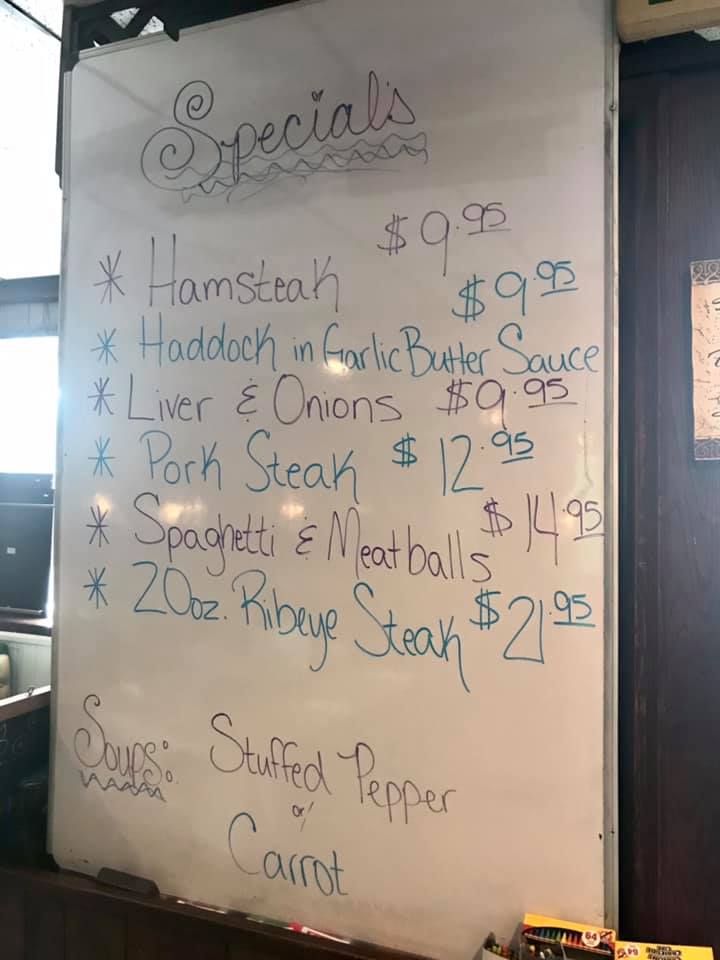 Specials
* Hamsteak $9.95
* Haddock in Garlic Butter Sauce $9.95
* Liver & Onions $9.95
* Pork Steak $12.95
* Spaghetti & Meatballs $14.95
* 20oz. Ribeye Steak $21.95
Soups: Stuffed Pepper
or/
Carrot
64
64